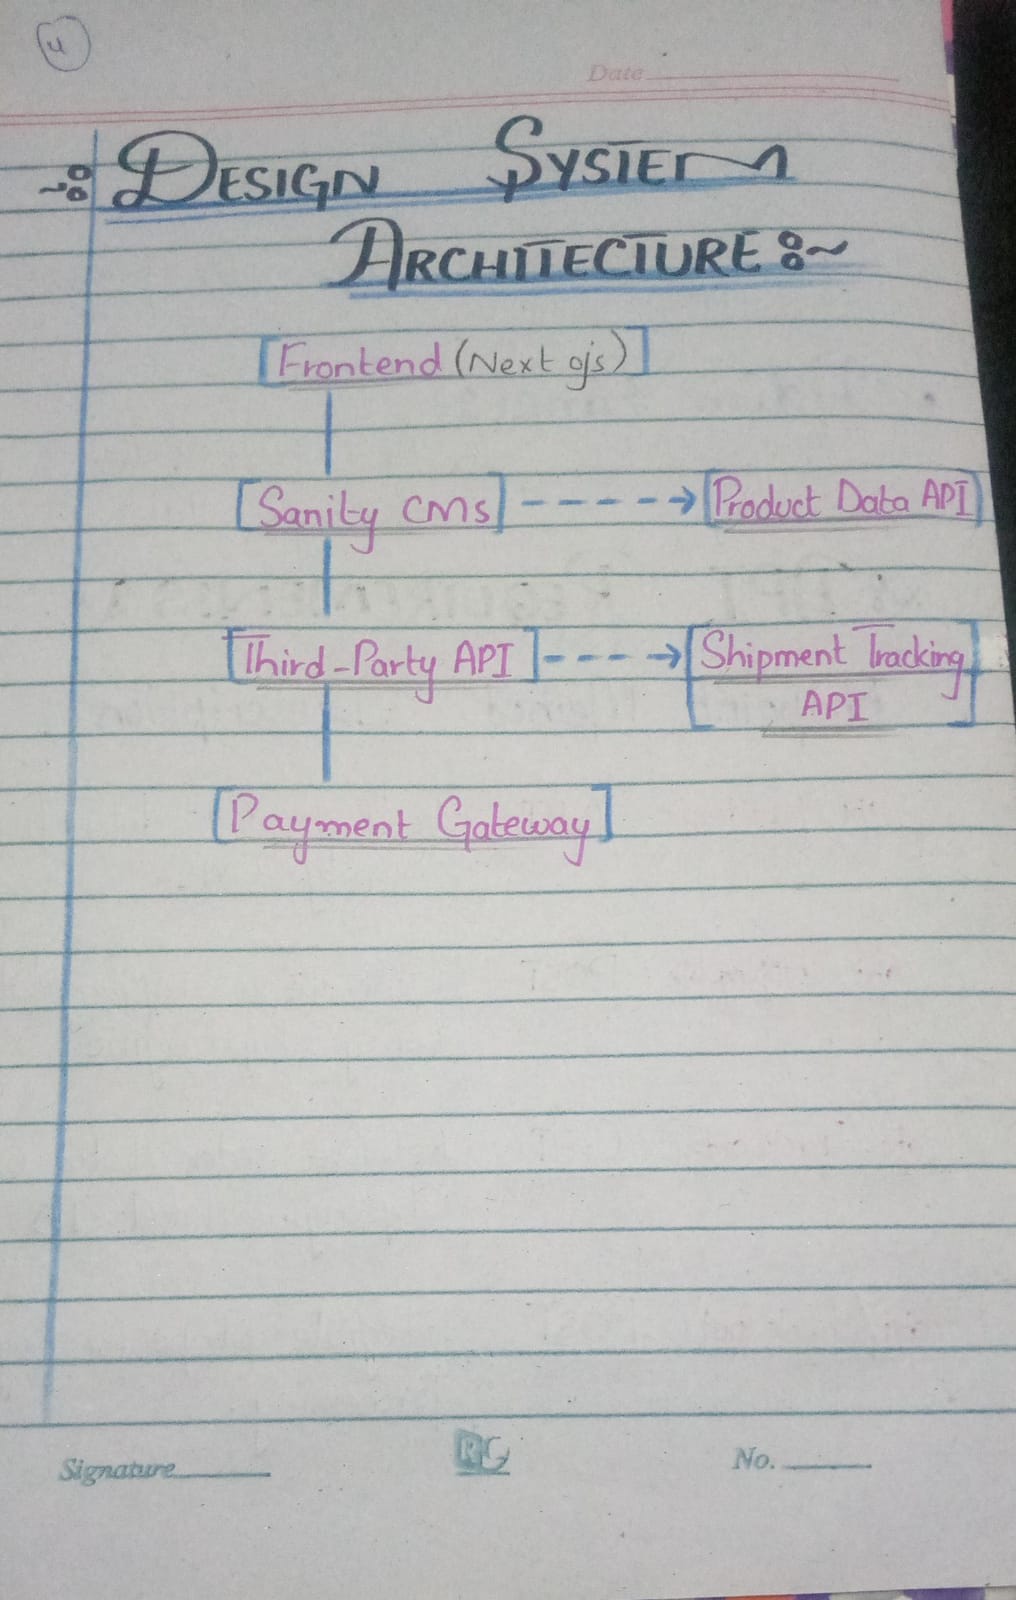 4
Date
DESIGN SYSTEM
ARCHITECTURE :~
[Frontend (Next js)]
[Sanity CMS] ----→ [Product Data API]
[Third-Party API] ----→ [Shipment Tracking
API]
[Payment Gateway]
Signature RG No.